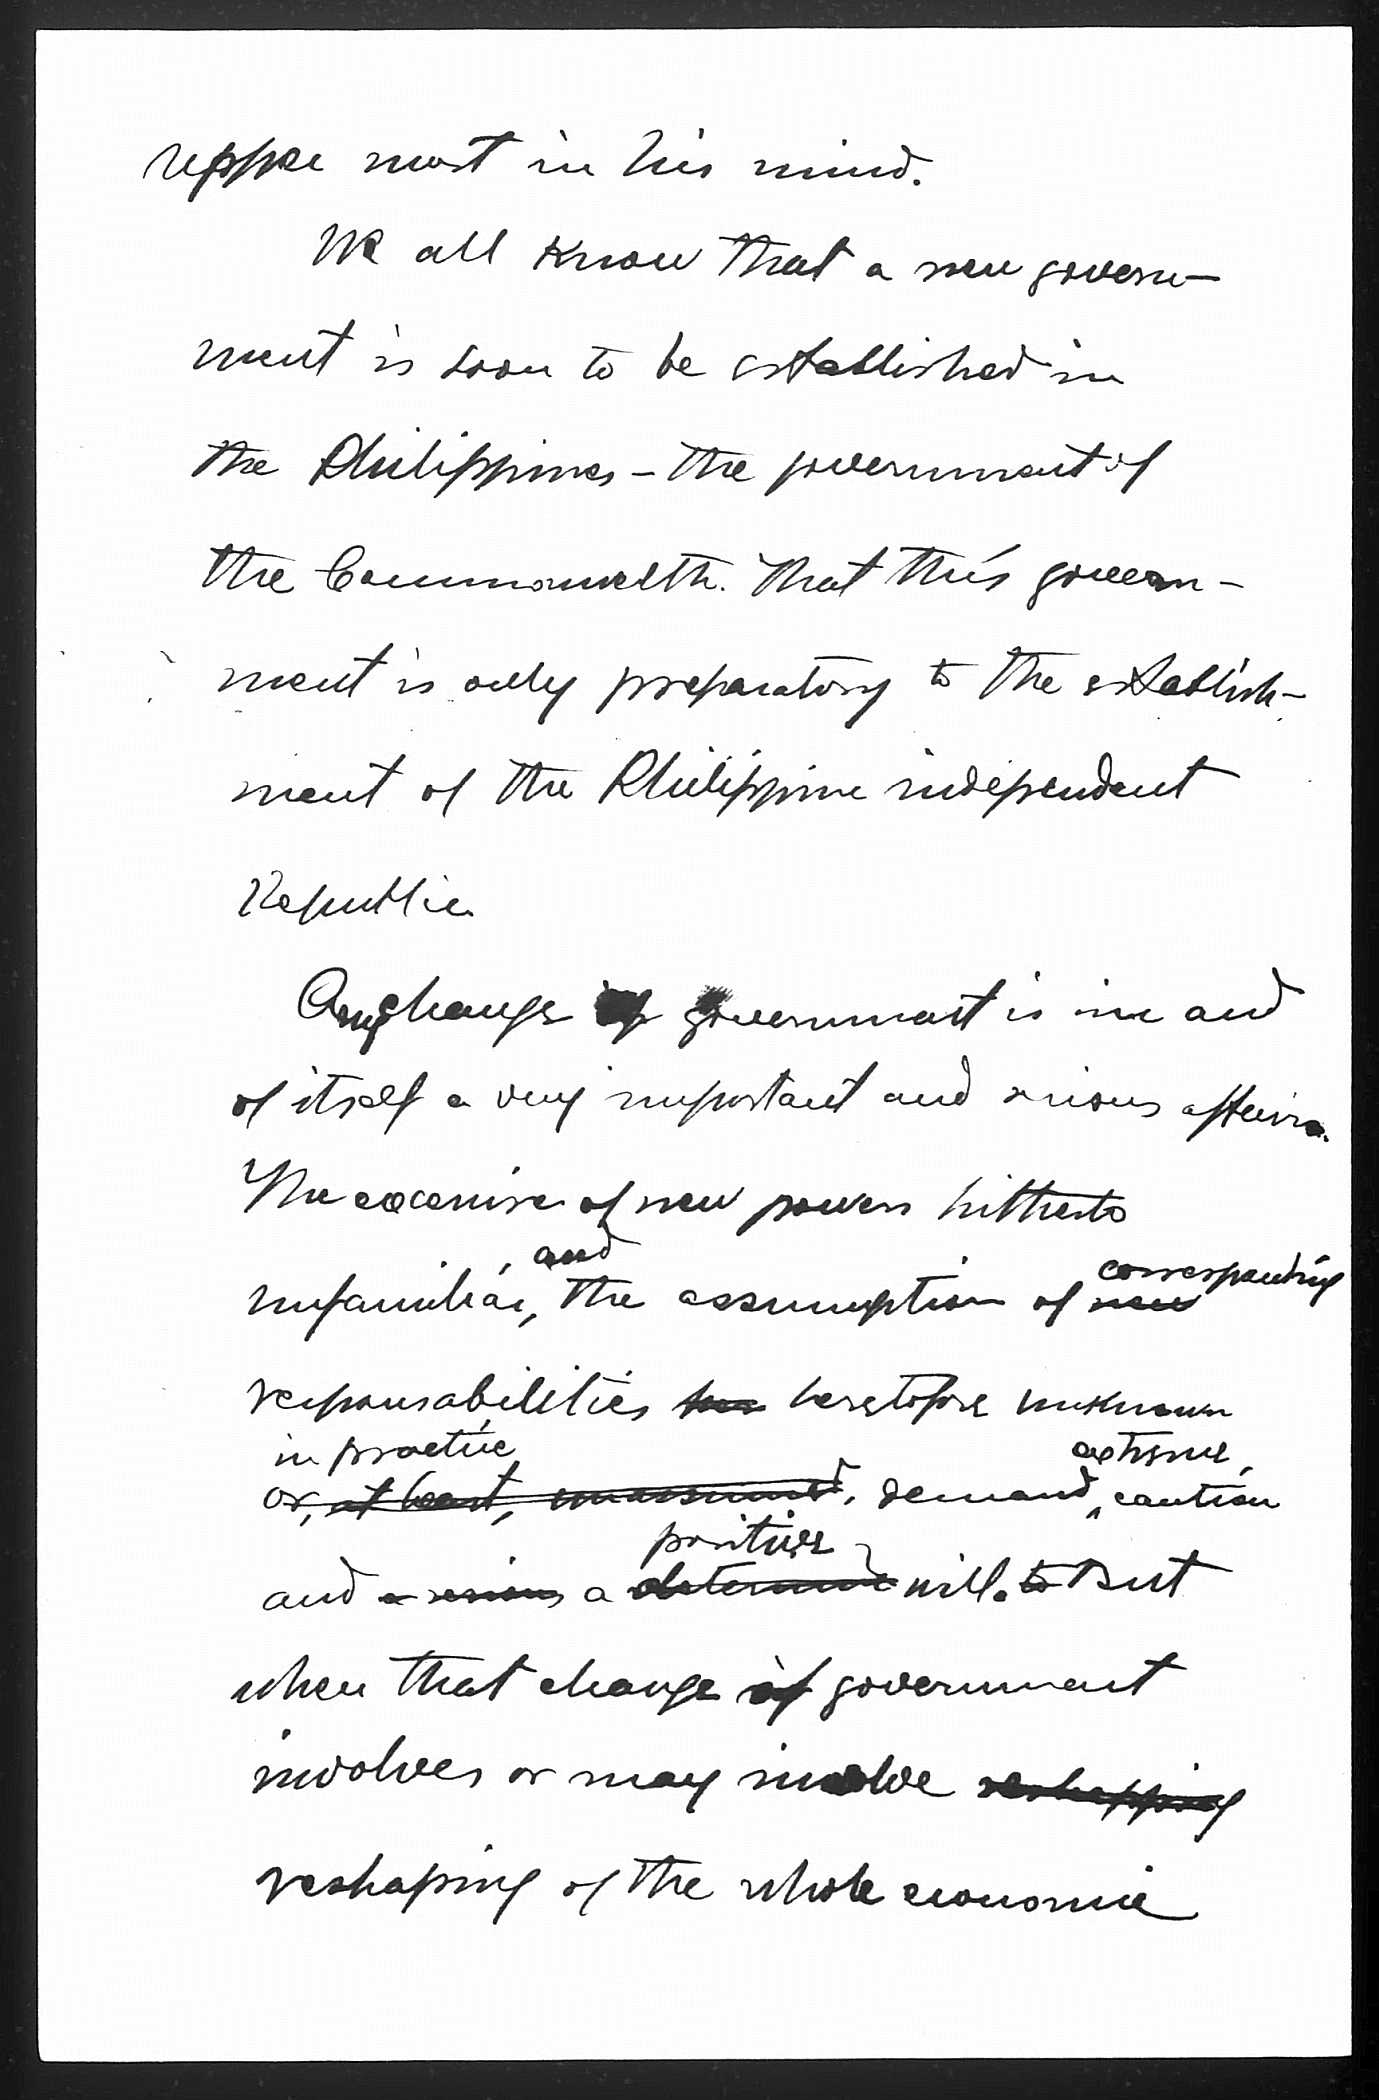 upper most in his mind.
We all know that a new govern-
ment is soon to be established in
the Philippines - the government of
the Commonwelth. That this govern-
ment is only preparatory to the establish-
ment of the Philippine independent
Republic.
Any change of government is in and
of itself a very important and serious affair.
The exercise of new powers hitherto
and
corresponding
unfamiliar, the assumption of new
responsabilities heretofore unknown
in practice
extreme
or, at least, unassumed, demand caution
positive
and a serious a determined will. to But
when that change of government
involves or may involve reshapping
reshaping of the whole economic